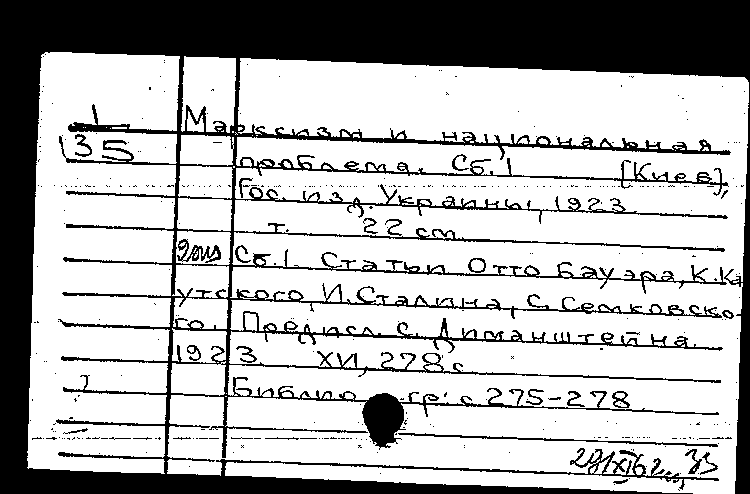 1 Марксизм и национальная
135 проблема. Сб.1 [Киев],
Гос. изд. Украины, 1923
т. 22 см
Сб.1. Статьи Отто Бауэра, К.Ка
утского, И.Сталина, С. Семковско-
го. Предисл. С. Диманштейна.
1923. XVI, 278 с
Библиогр: с 275-278